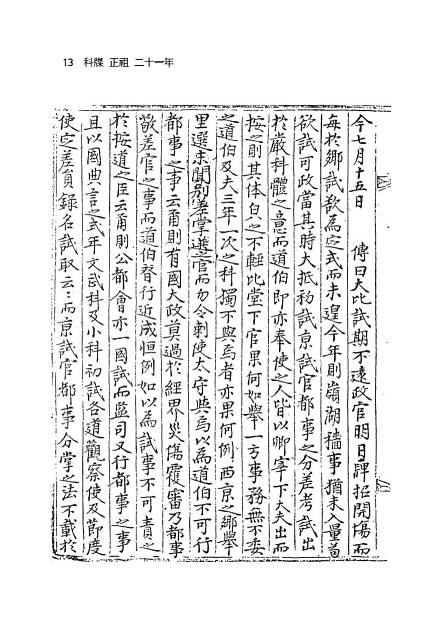 13 科牒 正祖 二十一年
今七月十五日 傳曰大比試期不遠政官明日牌招開場而
每於鄕試欲爲定式而未遑今年則嶺湖穡事猶未入量首
欲試可政當其時大抵初試京試官都事之分差考試出
於嚴科體之意而道伯即亦奉使之人皆以卿宰下大夫出而
按之則其体自之不輕比堂下官果何如舉一方事務無不委
之道伯及夫三年一次之科獨不與焉者亦果何例西京之鄕擧
里選未聞別差掌選之官而勿令刺使太守與焉以爲道伯不可行
都事之事云甭則有國大政莫過於經界災傷覆審乃都事
敬差官之事而道伯督行近成恒例如以爲試事不可責之
於按道之臣云甭則公都會亦一國試而監司又行都事之事
且以國典言之式年文武科及小科初試各道觀察使及節度
使定差員錄名試取云〻而京試官都事分掌之法不載於